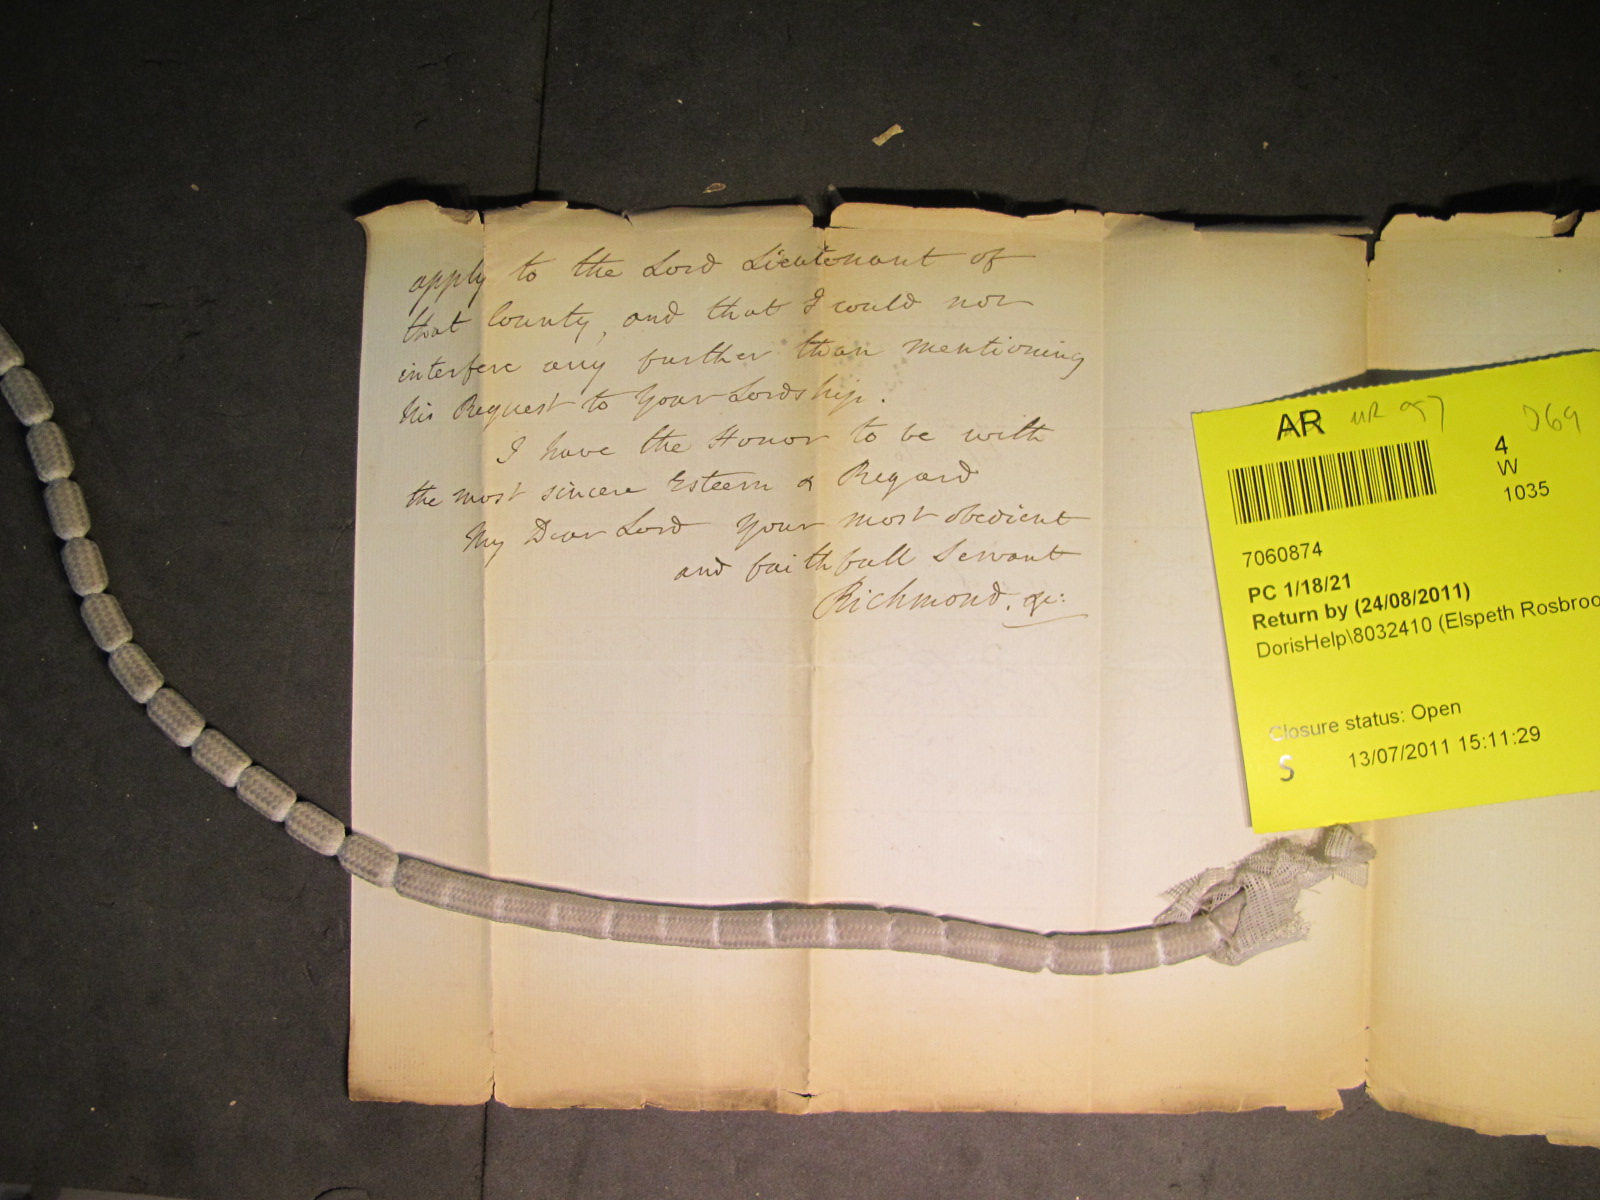 apply to the Lord Lieutenant of
that County, and that I could not
interfere any further than mentioning
his Request to Your Lordship.
I have the Honor to be with
the most sincere Esteem & Regard
My Dear Lord Your most obedient
and faithfull Servant
Richmond. &c:
AR
4
W
1035
7060874
PC 1/18/21
Return by (24/08/2011)
DorisHelp\8032410 (Elspeth Rosbroo
Closure status: Open
S 13/07/2011 15:11:29